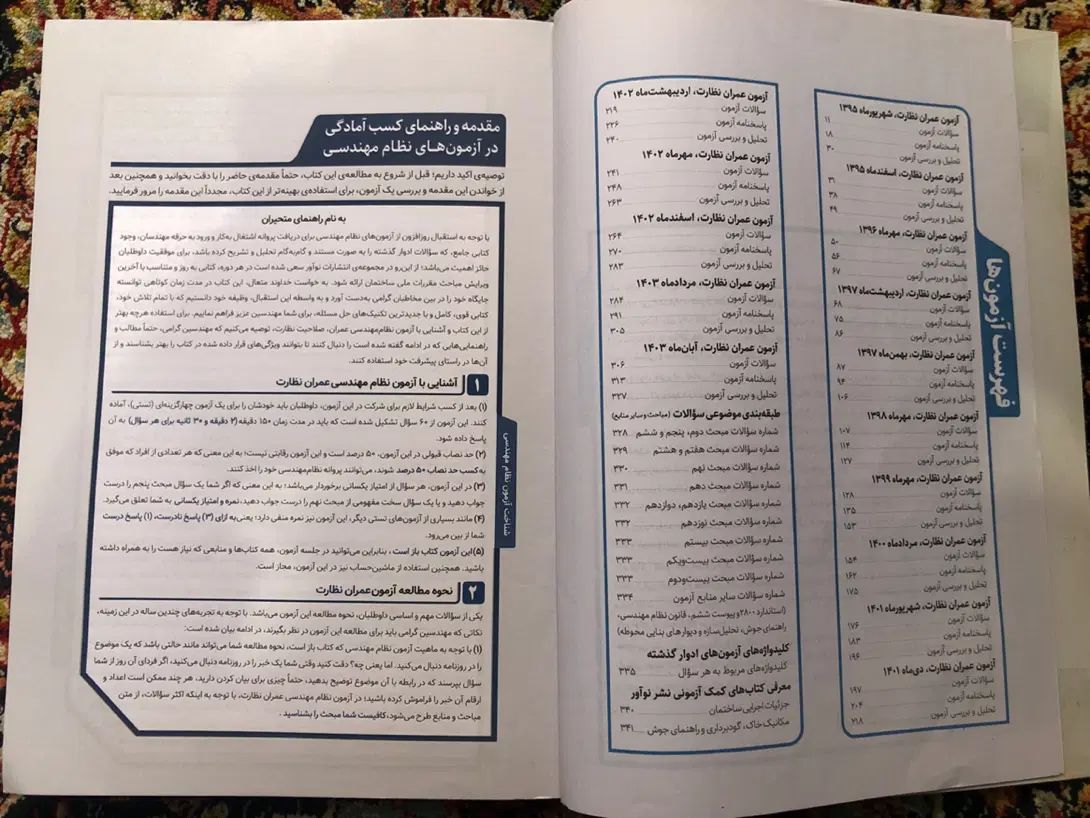 فهرست آزمون‌ها
آزمون عمران نظارت، شهریورماه ۱۳۹۵
سؤالات آزمون ۱۱
پاسخنامه آزمون ۱۸
تحلیل و بررسی آزمون ۳۰
آزمون عمران نظارت، اسفندماه ۱۳۹۵
سؤالات آزمون ۳۱
پاسخنامه آزمون ۳۸
تحلیل و بررسی آزمون ۴۹
آزمون عمران نظارت، مهرماه ۱۳۹۶
سؤالات آزمون ۵۰
پاسخنامه آزمون ۵۶
تحلیل و بررسی آزمون ۶۷
آزمون عمران نظارت، اردیبهشت‌ماه ۱۳۹۷
سؤالات آزمون ۶۸
پاسخنامه آزمون ۷۵
تحلیل و بررسی آزمون ۸۶
آزمون عمران نظارت، بهمن‌ماه ۱۳۹۷
سؤالات آزمون ۸۷
پاسخنامه آزمون ۹۴
تحلیل و بررسی آزمون ۱۰۶
آزمون عمران نظارت، مهرماه ۱۳۹۸
سؤالات آزمون ۱۰۷
پاسخنامه آزمون ۱۱۴
تحلیل و بررسی آزمون ۱۲۷
آزمون عمران نظارت، مهرماه ۱۳۹۹
سؤالات آزمون ۱۲۸
پاسخنامه آزمون ۱۳۵
تحلیل و بررسی آزمون ۱۵۳
آزمون عمران نظارت، مردادماه ۱۴۰۰
سؤالات آزمون ۱۵۴
پاسخنامه آزمون ۱۶۲
تحلیل و بررسی آزمون ۱۷۵
آزمون عمران نظارت، شهریورماه ۱۴۰۱
سؤالات آزمون ۱۷۶
پاسخنامه آزمون ۱۸۳
تحلیل و بررسی آزمون ۱۹۶
آزمون عمران نظارت، دی‌ماه ۱۴۰۱
سؤالات آزمون ۱۹۷
پاسخنامه آزمون ۲۰۴
تحلیل و بررسی آزمون ۲۱۸
آزمون عمران نظارت، اردیبهشت‌ماه ۱۴۰۲
سؤالات آزمون ۲۱۹
پاسخنامه آزمون ۲۲۶
تحلیل و بررسی آزمون ۲۴۰
آزمون عمران نظارت، مهرماه ۱۴۰۲
سؤالات آزمون ۲۴۱
پاسخنامه آزمون ۲۴۸
تحلیل و بررسی آزمون ۲۶۳
آزمون عمران نظارت، اسفندماه ۱۴۰۲
سؤالات آزمون ۲۶۴
پاسخنامه آزمون ۲۷۰
تحلیل و بررسی آزمون ۲۸۳
آزمون عمران نظارت، مردادماه ۱۴۰۳
سؤالات آزمون ۲۸۴
پاسخنامه آزمون ۲۹۱
تحلیل و بررسی آزمون ۳۰۵
آزمون عمران نظارت، آبان‌ماه ۱۴۰۳
سؤالات آزمون ۳۰۶
پاسخنامه آزمون ۳۱۳
تحلیل و بررسی آزمون ۳۲۷
طبقه‌بندی موضوعی سؤالات (مباحث و سایر منابع)
شماره سؤالات مبحث دوم، پنجم و ششم ۳۲۸
شماره سؤالات مبحث هفتم و هشتم ۳۲۹
شماره سؤالات مبحث نهم ۳۳۰
شماره سؤالات مبحث دهم ۳۳۱
شماره سؤالات مبحث یازدهم، دوازدهم ۳۳۲
شماره سؤالات مبحث نوزدهم ۳۳۲
شماره سؤالات مبحث بیستم ۳۳۳
شماره سؤالات مبحث بیست‌ویکم ۳۳۳
شماره سؤالات مبحث بیست‌ودوم ۳۳۳
شماره سؤالات سایر منابع آزمون ۳۳۴
(استاندارد ۲۸۰۰ و پیوست ششم، قانون نظام مهندسی،
راهنمای جوش، تحلیل‌سازه و دیوارهای بنایی محوطه)
کلیدواژه‌های آزمون‌های ادوار گذشته
کلیدواژه‌های مربوط به هر سؤال ۳۳۵
معرفی کتاب‌های کمک آزمونی نشر نوآور
جزئیات اجرایی ساختمان ۳۴۰
مکانیک خاک، گودبرداری و راهنمای جوش ۳۴۱
مقدمه و راهنمای کسب آمادگی
در آزمون‌های نظام مهندسی
توصیه‌ی اکید داریم؛ قبل از شروع به مطالعه‌ی این کتاب، حتماً مقدمه‌ی حاضر را با دقت بخوانید و همچنین بعد
از خواندن این مقدمه و بررسی یک آزمون، برای استفاده‌ی بهینه‌تر از این کتاب، مجدداً این مقدمه را مرور فرمایید.
به نام راهنمای متحیران
با توجه به استقبال روزافزون از آزمون‌های نظام مهندسی برای دریافت پروانه اشتغال به‌کار و ورود به حرفه مهندسان، وجود
کتابی جامع، که سؤالات ادوار گذشته را به صورت مستند و گام‌به‌گام تحلیل و تشریح کرده باشد، برای موفقیت داوطلبان
حائز اهمیت می‌باشد؛ از این‌رو در مجموعه‌ی انتشارات نوآور سعی شده است در هر دوره، کتابی به روز و متناسب با آخرین
ویرایش مباحث مقررات ملی ساختمان ارائه شود. به خواست خداوند متعال، این کتاب در مدت زمان کوتاهی توانسته
جایگاه خود را در بین مخاطبان گرامی به‌دست آورد و به واسطه این استقبال، وظیفه خود دانستیم که با تمام تلاش خود،
کتابی قوی، کامل و با جدیدترین تکنیک‌های حل مسئله، برای شما مهندسین عزیز فراهم نماییم. برای استفاده هرچه بهتر
از این کتاب و آشنایی با آزمون نظام‌مهندسی عمران، صلاحیت نظارت، توصیه می‌کنیم که مهندسین گرامی، حتماً مطالب و
راهنمایی‌هایی که در ادامه گفته شده است را دنبال کنند تا بتوانند ویژگی‌های قرار داده شده در کتاب را بهتر بشناسند و از
آن‌ها در راستای پیشرفت خود استفاده کنند.
۱ آشنایی با آزمون نظام مهندسی عمران نظارت
(۱) بعد از کسب شرایط لازم برای شرکت در این آزمون، داوطلبان باید خودشان را برای یک آزمون چهارگزینه‌ای (تستی)، آماده
کنند. این آزمون از ۶۰ سؤال تشکیل شده است که باید در مدت زمان ۱۵۰ دقیقه (۲ دقیقه و ۳۰ ثانیه برای هر سؤال) به آن
پاسخ داده شود.
(۲) حد نصاب قبولی در این آزمون، ۵۰ درصد است و این آزمون رقابتی نیست؛ به این معنی که هر تعدادی از افراد که موفق
به کسب حد نصاب ۵۰ درصد شوند، می‌توانند پروانه نظام‌مهندسی خود را اخذ کنند.
(۳) در این آزمون، هر سؤال از امتیاز یکسانی برخوردار می‌باشد؛ به این معنی که اگر شما یک سؤال مبحث پنجم را درست
جواب دهید و یا یک سؤال سخت مفهومی از مبحث نهم را درست جواب دهید، نمره و امتیاز یکسانی به شما تعلق می‌گیرد.
(۴) مانند بسیاری از آزمون‌های تستی دیگر، این آزمون نیز نمره منفی دارد؛ یعنی به ازای (۳) پاسخ نادرست، (۱) پاسخ درست
شما از بین می‌رود.
(۵) این آزمون کتاب باز است، بنابراین می‌توانید در جلسه آزمون، همه کتاب‌ها و منابعی که نیاز هست را به همراه داشته
باشید. همچنین استفاده از ماشین‌حساب نیز در این آزمون، مجاز است.
۲ نحوه مطالعه آزمون عمران نظارت
یکی از سؤالات مهم و اساسی داوطلبان، نحوه مطالعه این آزمون می‌باشد. با توجه به تجربه‌های چندین ساله در این زمینه،
نکاتی که مهندسین گرامی باید برای مطالعه این آزمون در نظر بگیرند، در ادامه بیان شده است:
(۱) با توجه به ماهیت آزمون نظام مهندسی که کتاب باز است، نحوه مطالعه شما می‌تواند مانند حالتی باشد که یک موضوع
را در روزنامه دنبال می‌کنید. اما یعنی چه؟ دقت کنید وقتی شما یک خبر را در روزنامه دنبال می‌کنید، اگر فردای آن روز از شما
سؤال بپرسند که در رابطه با آن موضوع توضیح بدهید، حتماً چیزی برای بیان کردن دارید، هر چند ممکن است اعداد و
ارقام آن خبر را فراموش کرده باشید؛ در آزمون نظام مهندسی عمران نظارت، با توجه به اینکه اکثر سؤالات، از متن
مباحث و منابع طرح می‌شود، کافیست شما مبحث را بشناسید.
شناخت آزمون نظام مهندسی